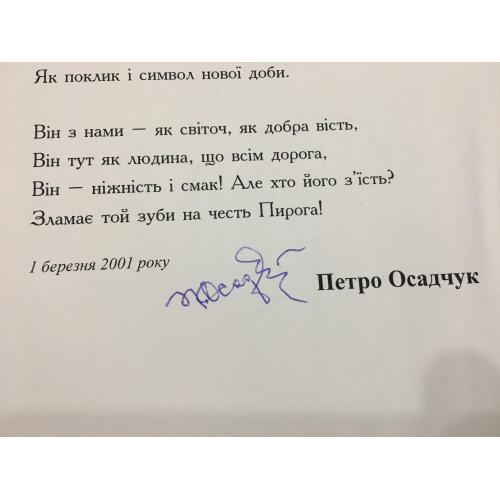 Як поклик і символ нової доби.
Він з нами — як світоч, як добра вість,
Він тут як людина, що всім дорога,
Він — ніжність і смак! Але хто його з'їсть?
Зламає той зуби на честь Пирога!
1 березня 2001 року
Петро Осадчук